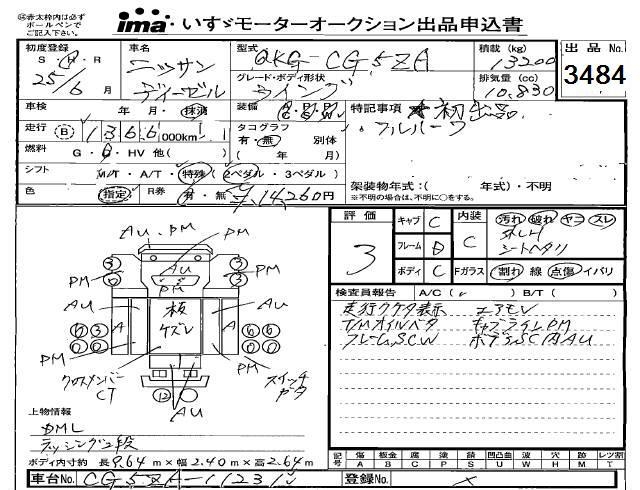 ㊟赤太枠内は必ず
ボールペンで
ご記入下さい。
ima・いすゞモーターオークション出品申込書
初度登録
S・H・R
25年
6月
車名
ニッサン
ディーゼル
型式
QKG-CG5ZA
グレード・ボディ形状
ウイング
積載 (kg)
13200
排気量 (cc)
10,830
出品 No.
3484
車検
年 月・抹消
装備
特記事項
★初出品
フルハーフ
走行 B 1366,000km
タコグラフ
有・無 別体
( 年 月)
燃料
G・D・HV 他( )
シフト
M/T・A/T・特殊(2ペダル・3ペダル)
色
指定 R券 有・無 14,260円
架装物年式:( 年式)・不明
※不明の場合は、不明に○をする。
評価
3
キャブ C
フレーム D
ボディ C
内装
C
汚れ 破れ ヤニ スレ
シートヘタリ
Fガラス
割れ 線 点傷 イバリ
検査員報告 A/C( ) B/T( )
走行6ケタ表示 エアモレ
T/Mオイルベタ
フレームSCW ボデーSC内AU
AU PM
PM
AU
PM
PM
PM
AU
AU
板
ケズレ
A
A
PM
PM
クロスメンバー
CT
AU
スイッチ
ガタ
12
上物情報
DML
ラッシング2段
ボディ内寸約 長9.64m×幅2.40m×高2.64m
記号 傷 板金 腐 凹 錆 補 凹凸曲 波 穴 跡 レツ割
A B C P S U W H M T
車台No. CG5ZA-11231
登録No.